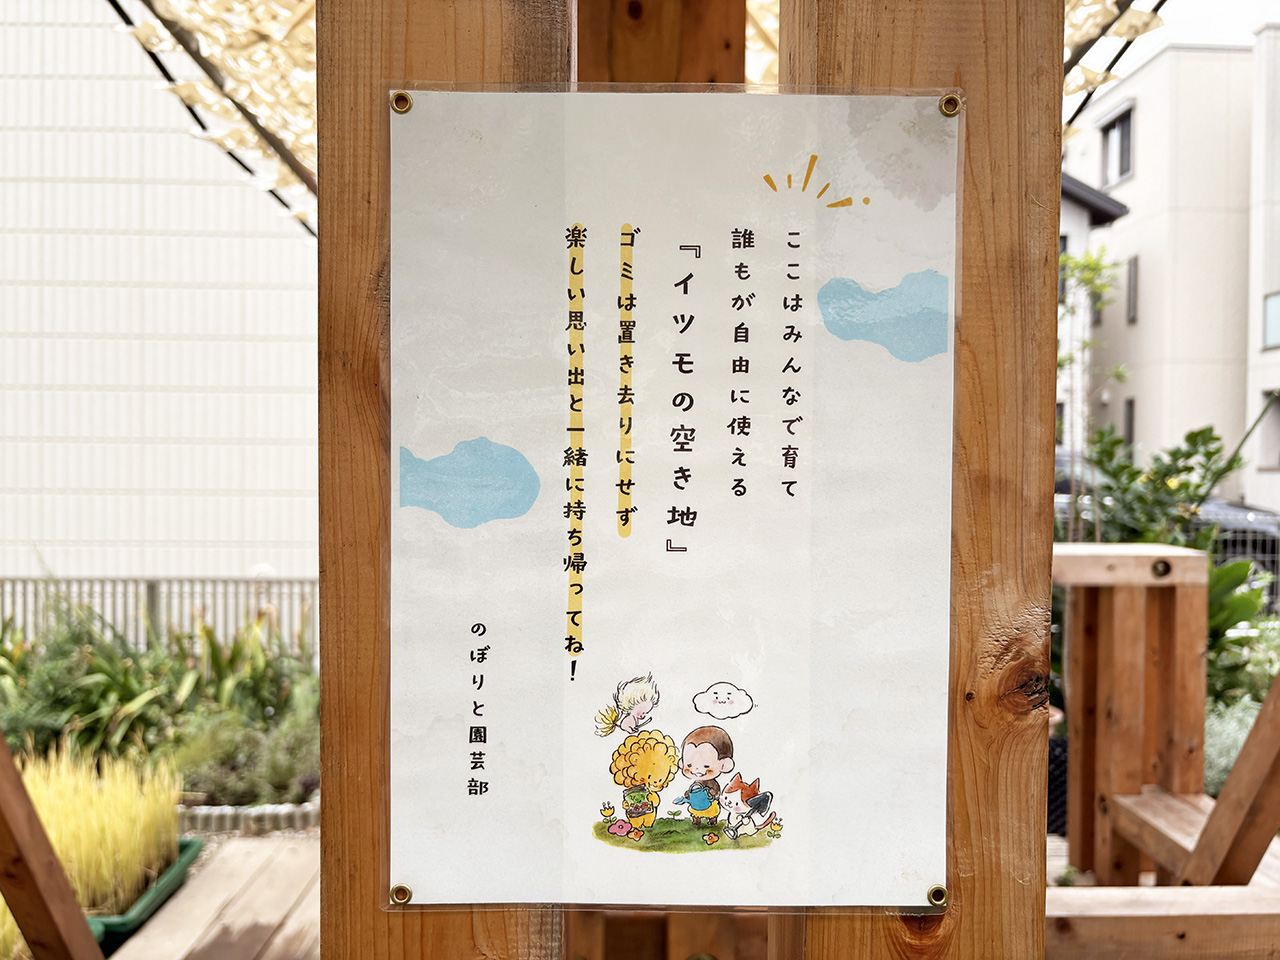 ここはみんなで育て
誰もが自由に使える
『イツモの空き地』
ゴミは置き去りにせず
楽しい思い出と一緒に持ち帰ってね！
のぼりと園芸部